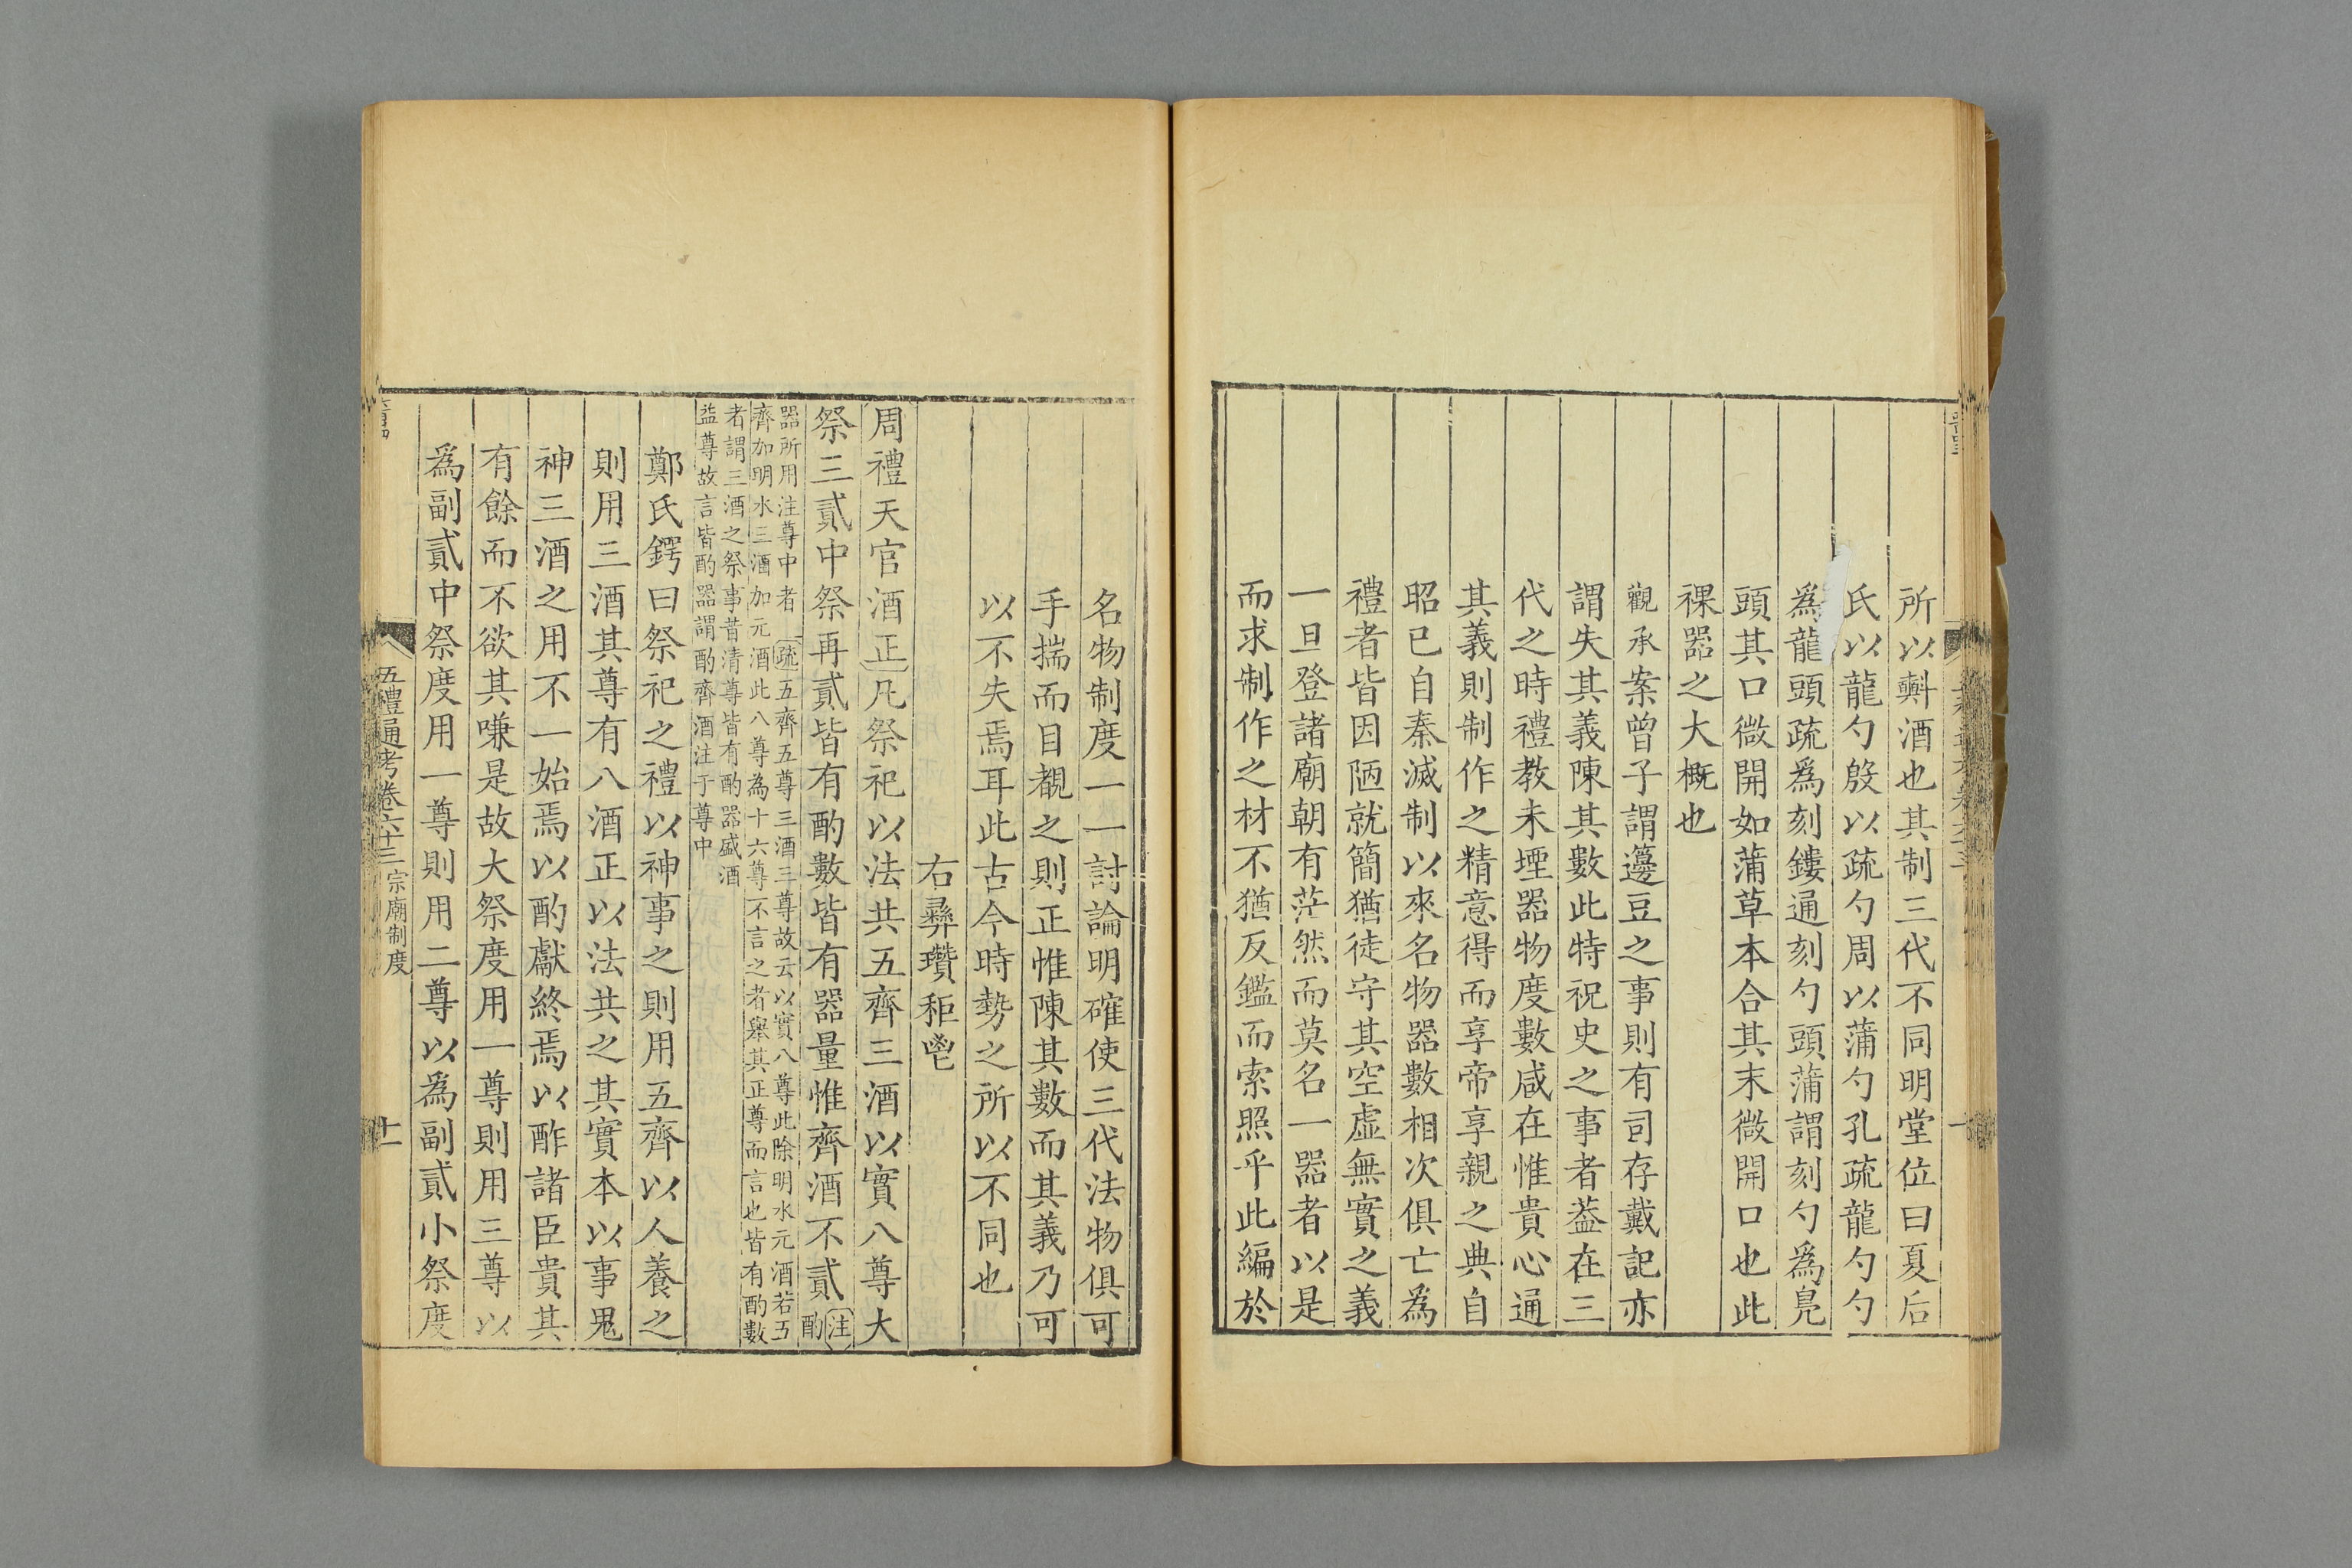 所以㪺酒也其制三代不同明堂位曰夏后
氏以龍勺殷以疏勺周以蒲勺孔疏龍勺勺
爲龍頭疏爲刻鏤通刻勺頭蒲謂刻勺爲鳧
頭其口微開如蒲草本合其末微開口也此
祼器之大概也
觀承案曾子謂籩豆之事則有司存戴記亦
謂失其義陳其數此特祝史之事者葢在三
代之時禮教未堙器物度數咸在惟貴心通
其義則制作之精意得而享帝享親之典自
昭已自秦滅制以來名物器數相次俱亡爲
禮者皆因陋就簡猶徒守其空虛無實之義
一旦登諸廟朝有茫然而莫名一器者以是
而求制作之材不猶反鑑而索照乎此編於
名物制度一一討論明確使三代法物俱可
手揣而目覩之則正惟陳其數而其義乃可
以不失焉耳此古今時勢之所以不同也
右彝瓚秬鬯
周禮天官酒正凡祭祀以法共五齊三酒以實八尊大
祭三貳中祭再貳皆有酌數皆有器量惟齊酒不貳注酌
器所用注尊中者疏五齊五尊三酒三尊故云以實八尊此除明水元酒若五
齊加明水三酒加元酒此八尊為十六尊不言之者舉其正尊而言也皆有酌數
者謂三酒之祭事昔清尊皆有酌器盛酒
益尊故言皆酌器謂酌齊酒注于尊中
鄭氏鍔曰祭祀之禮以神事之則用五齊以人養之
則用三酒其尊有八酒正以法共之其實本以事鬼
神三酒之用不一始焉以酌獻終焉以酢諸臣貴其
有餘而不欲其嗛是故大祭度用一尊則用三尊以
爲副貳中祭度用一尊則用二尊以爲副貳小祭度
五禮通考卷六十三 宗廟制度
十一